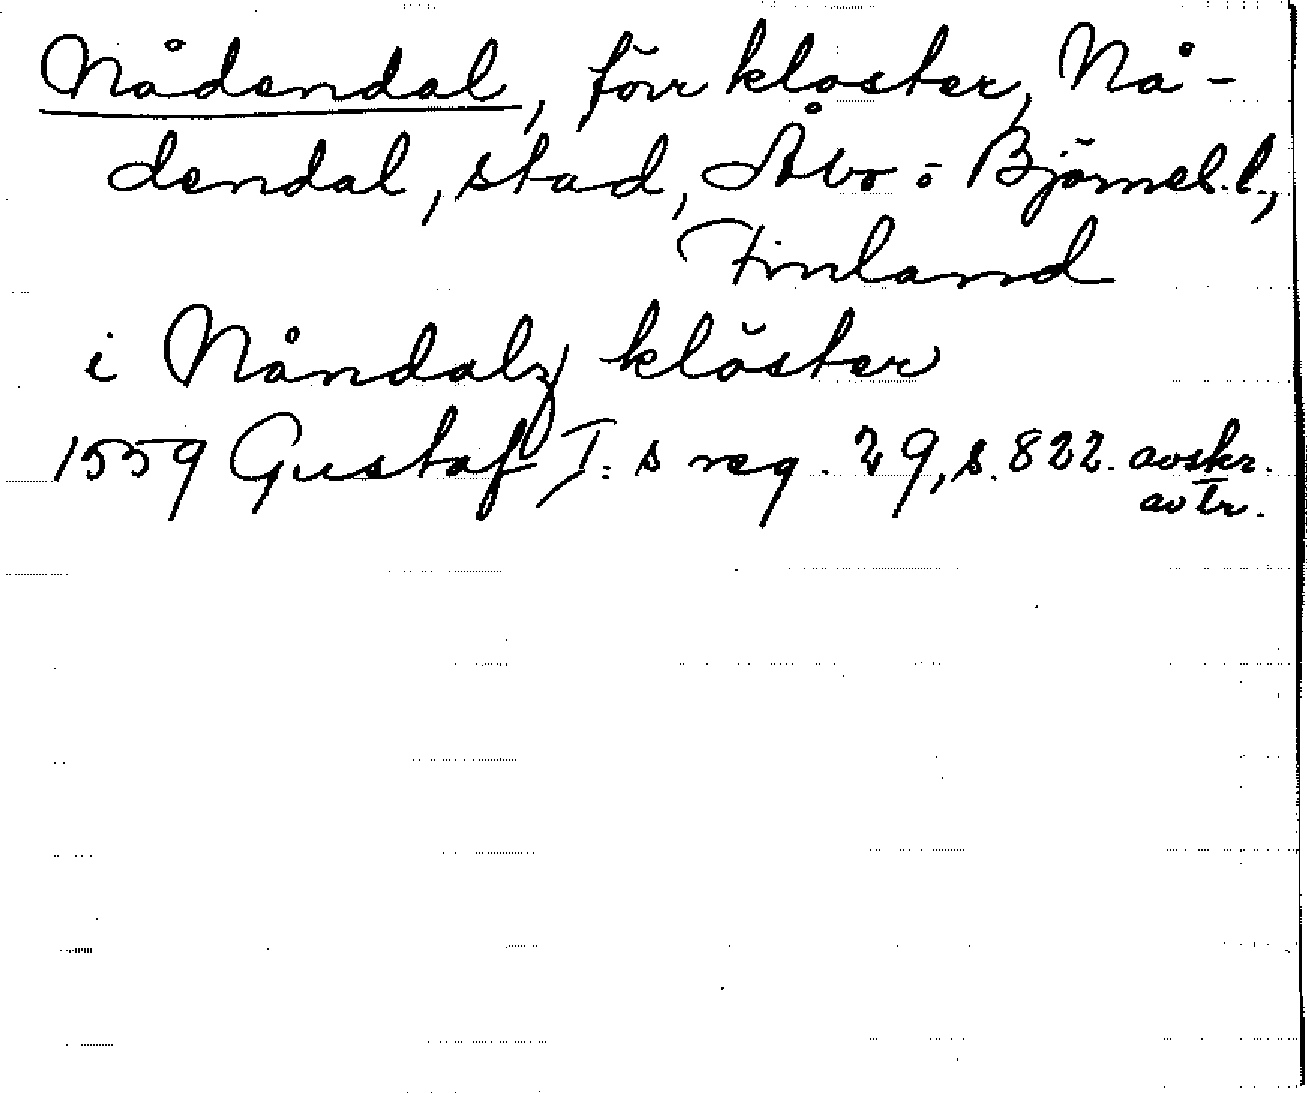 Nådendal, förr kloster, Nå-
dendal, stad, Åbo o Björneb.l.,
Finland
i Nåndalz klöster
1559 Gustaf I:s reg. 29, s. 822. avskr.
av tr.